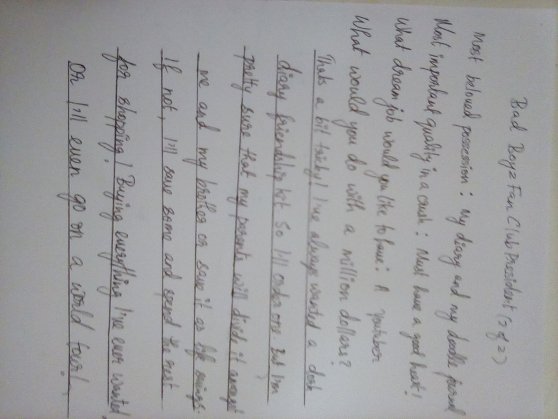 Bad Boyz Fan Club President (2 of 2)
Most beloved possession: My diary and my doodle journal
Most important quality in a crush: Must have a good heart!
What dream job would you like to have: A youtuber
What would you do with a million dollars?
Thats a bit tricky! I've always wanted a dork
diary friendship kit so I'll order one. But I'm
pretty sure that my parents will divide it amongst
me and my brother or save it as life savings.
If not, I'll save some and spend the rest
for shopping! Buying everything I've ever wanted
Or I'll even go on a world tour!